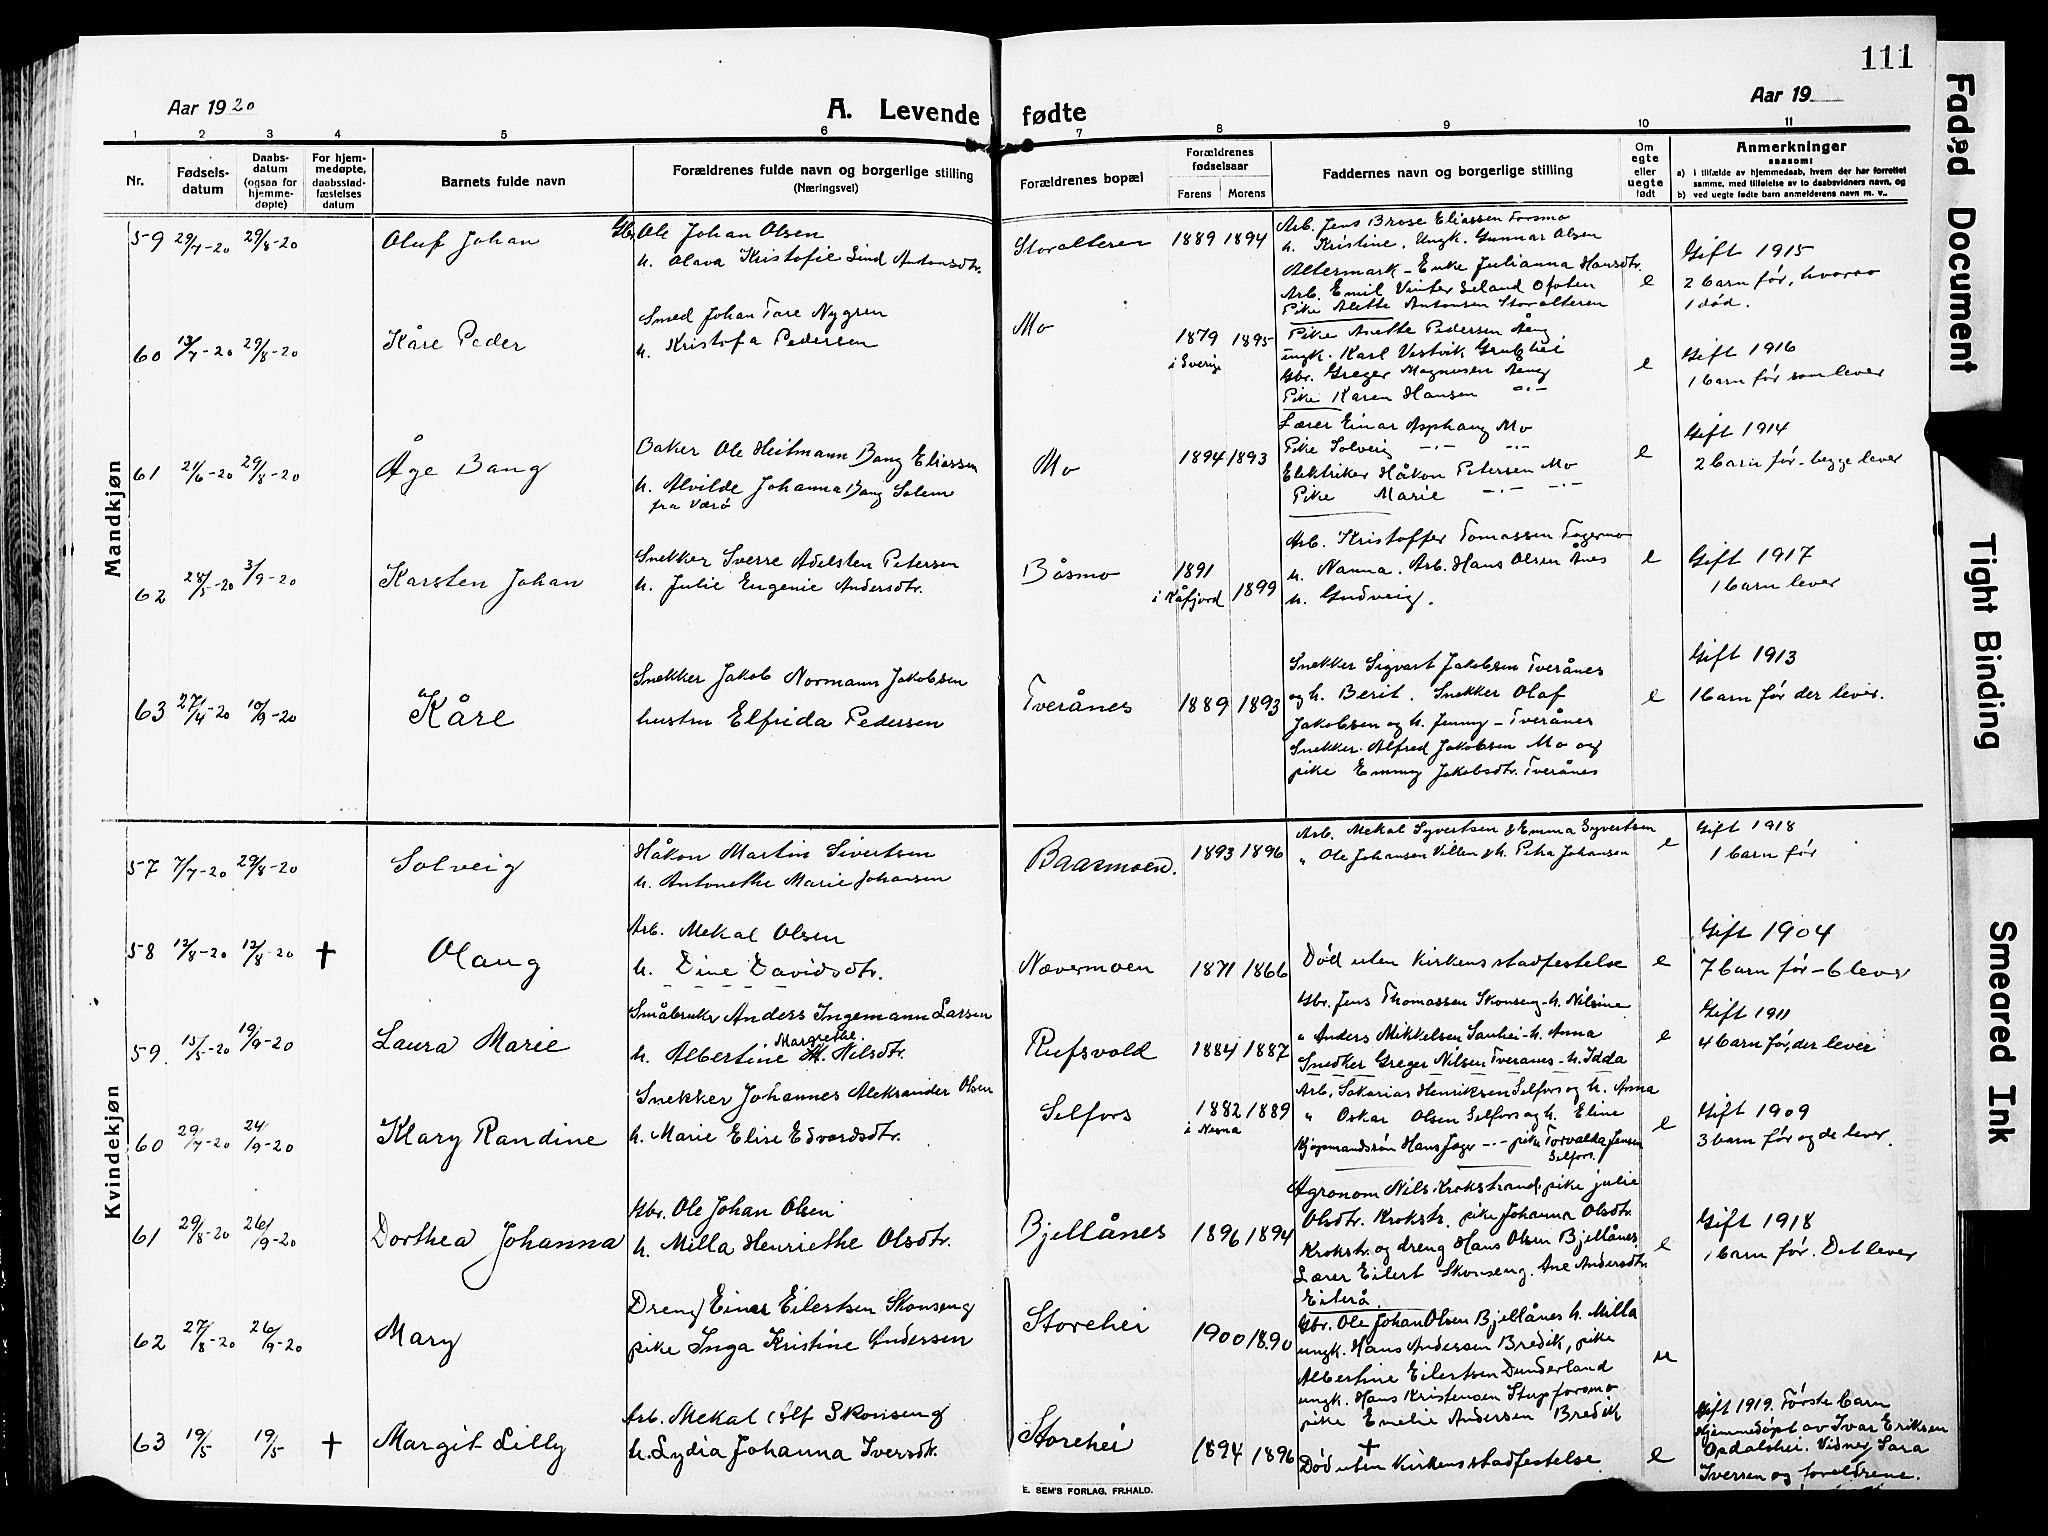 111
Aar 1920
A. Levende fødte
Aar 19
1 2 3 4 5 6 7 8 9 10 11
Nr.
Fødsels-
datum
Daabs-
datum
(ogsaa for
hjemme-
døpte)
For hjem-
medøpte,
daabsstad-
fæstelses
datum
Barnets fulde navn
Forældrenes fulde navn og borgerlige stilling
(Næringsvei)
Forældrenes bopæl
Forældrenes
fødselsaar
Farens Morens
Faddernes navn og borgerlige stilling
Om
egte
eller
uegte
født
Anmerkninger
saasom:
a) i tilfælde av hjemmedaab, hvem der har forrettet
samme, med tilføielse av to daabsvidners navn, og
b) ved uegte fødte barn anmelderens navn m. v.
Mandkjøn
59 29/7-20 29/8-20 Oluf Johan
Gbr. Ole Johan Olsen
h. Olava Kristofie Lind Antonsdtr.
Storalteren 1889 1894
Arb. Jens Brose Eliassen Forsmo
h. Kristine. Ungk. Gunnar Olsen
Altermark - Enke Julianna Hansdtr.
Arb. Emil Vinter Leland Ofoten
Pike Alette Antonsen Storalteren
e
Gift 1915
2 barn før, hvorav
1 død.
60 13/7-20 29/8-20 Kåre Peder
Smed Johan Tore Nygren
h. Kristofa Pedersen
Mo 1879 1895
i Sverige
Pike Anette Pedersen Aeng
ungk. Karl Vestvik Grubhei
Gbr. Greger Magnusen Aeng
Pike Karen Hansen -"-
e
Gift 1916
1 barn før som lever
61 21/6-20 29/8-20 Åge Bang
Baker Ole Heitmann Bang Eliassen
h. Alvilde Johanna Bang Solem
fra Værø
Mo 1894 1893
Lærer Einar Asphaug Mo
Pike Solveig -"- -"-
Elektriker Håkon Petersen Mo
Pike Marie -"- -"-
e
Gift 1914
2 barn før - begge lever
62 28/5-20 3/9-20 Karsten Johan
Snekker Sverre Adelsten Petersen
h. Julie Eugenie Andersdtr.
Båsmo 1891 1899
i Kåfjord
Arb. Kristoffer Tomassen Fagermo
h. Nanna. Arb. Hans Olsen Ånes
h. Gudveig.
e
Gift 1917
1 barn lever
63 27/4-20 10/9-20 Kåre
Snekker Jakob Normann Jakobsen
hustru Elfrida Pedersen
Tverånes 1889 1893
Snekker Sigvart Jakobsen Tverånes
og h. Berit. Snekker Olaf
Jakobsen og h. Jenny - Tverånes
Snekker Alfred Jakobsen Mo og
pike Emmy Jakobsdtr. Tverånes
e
Gift 1913
1 barn før der lever.
Kvindekjøn
57 7/7-20 29/8-20 Solveig
Håkon Martin Sivertsen
h. Antonethe Marie Johansen
Baasmoen. 1893 1896
Arb. Mekal Syvertsen & Emma Syvertsen
" Ole Johansen Villen & h. Petra Johansen
e
Gift 1918
1 barn før
58 12/8-20 12/8-20 † Olaug
Arb. Mekal Olsen
h. Dine Davidsdtr.
Nævermoen 1871 1866
Død uten Kirkens stadfestelse
e
Gift 1904
7 barn før - 6 lever
59. 15/5-20 19/9-20 Laura Marie
Småbruker Anders Ingemann Larsen
Margrethe.
h. Albertine M. Nilsdtr.
Rufsvold 1884 1887
Gbr. Jens Thomassen Skonseng - h. Nilsine
" Anders Mikkelsen Sauhei - h. Anna
Snedker Greger Nilsen Tveranes - h. Idda
e
Gift 1911
4 barn før, der lever
60 29/7-20 24/9-20 Klary Randine
Snekker Johannes Aleksander Olsen
h. Marie Elise Edvardsdtr.
Selfors 1882 1889
i Nesna
Arb. Sakarias Henriksen Selfors og h. Anna
" Oskar Olsen Selfors og h. Eline
Kjøpmandssøn Hans Jager -"- pike Torvalda Jensen
Selfors.
e
Gift 1909
3 barn før og de lever.
61 29/8-20 26/9-20 Dorthea Johanna
Gbr. Ole Johan Olsen
h. Milla Henriethe Olsdtr.
Bjellånes 1896 1894
Agronom Nils Krokstrand, pike Julie
Olsdtr. Krokstr. pike Johanna Olsdtr.
Krokstr. og dreng Hans Olsen Bjellånes
Lærer Eilert Skonseng. Ane Andersdtr.
Eiterå.
e
Gift 1918
1 barn før. Det lever
62 27/8-20 26/9-20 Mary
Dreng Einar Eilertsen Skonseng
pike Inga Kristine Andersen
Storehei 1900 1890
Gbr. Ole Johan Olsen Bjellånes h. Milla
ungk. Hans Andersen Bredik, pike
Albertine Eilertsen Dunderland
ungk. Hans Kristensen Stupforsmo
pike Emelie Andersen Bredik
u
63 19/5 19/5 † Margit Lilly
Arb. Mekal Olf Skonseng
h. Lydia Johanna Iversdtr.
Storehei 1894 1896
†
Død uten Kirkens stadfestelse.
e
Gift 1919. Første barn
Hjemmedøpt av Ivar Eriksen
Opdalshei. Vidner Sara
Iversen og foreldrene.
E. SEM'S FORLAG, FR.HALD.
Faded Document
Tight Binding
Smeared Ink